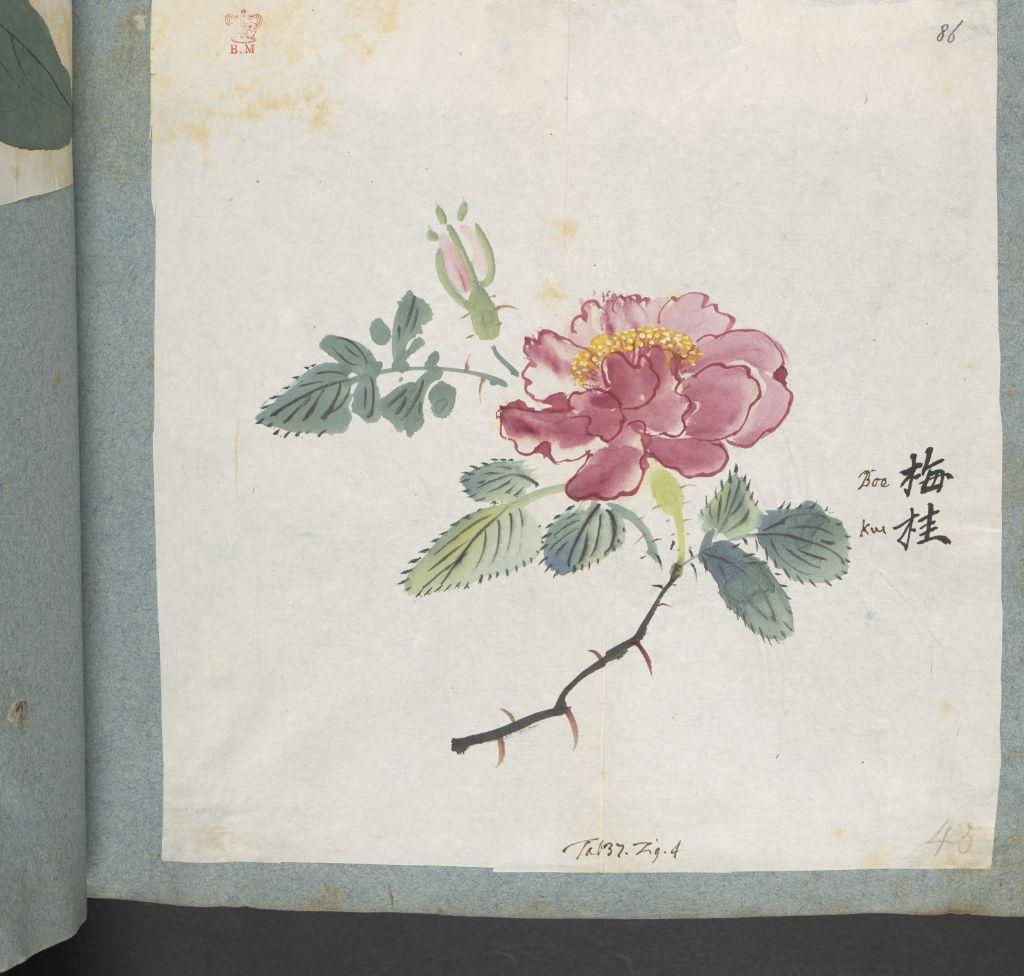 B.M
86
Boe 梅
Kui 桂
Tab37. Fig. 4